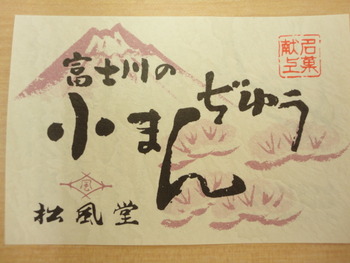 富士川の
小まんぢゅう
名菓
献上
風
松風堂